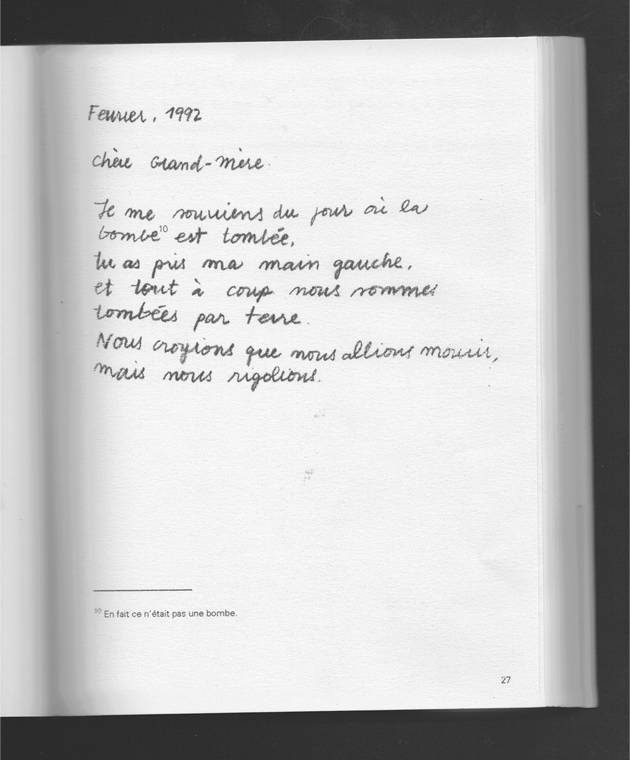 Fevrier, 1992
Chère Grand-Mère.
Je me souviens du jour où la
bombe¹⁰ est tombée,
tu as pris ma main gauche,
et tout à coup nous sommes
tombées par terre.
Nous croyions que nous allions mourir,
mais nous rigolions.
¹⁰ En fait ce n'était pas une bombe.
27